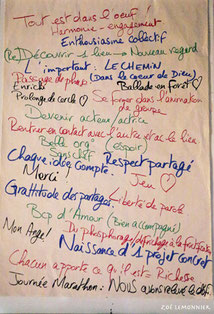 Tout est dans l'oeuf !
Harmonie - engagement
Enthousiasme collectif
(Re)Découvrir le lien → Nouveau regard
important : LE CHEMIN
Passage de
(Dans le coeur de Dieu)
Enrichi
Ballade en forêt ♡
Prolonge de cercle ♡
Se former dans l'animation de groupe
Devenir acteur/actrice
Rentrer en contact avec l'autre et as le lien
Belle orga° (espoir
Chaque idée Compte !
Respect partagé
Merci !
Jeu ♡
Gratitude des partages
Liberté de parole
Bcp d'Amour (Bien accompagné)
Mon Hege !
Du phosphorage/défrichage à la
Naissance d'1 projet concret
Chacun apporte ce qu'il est Richesse
Journée Marathon : NOUS avons relevé le défi
ZOÉ LEMONNIER